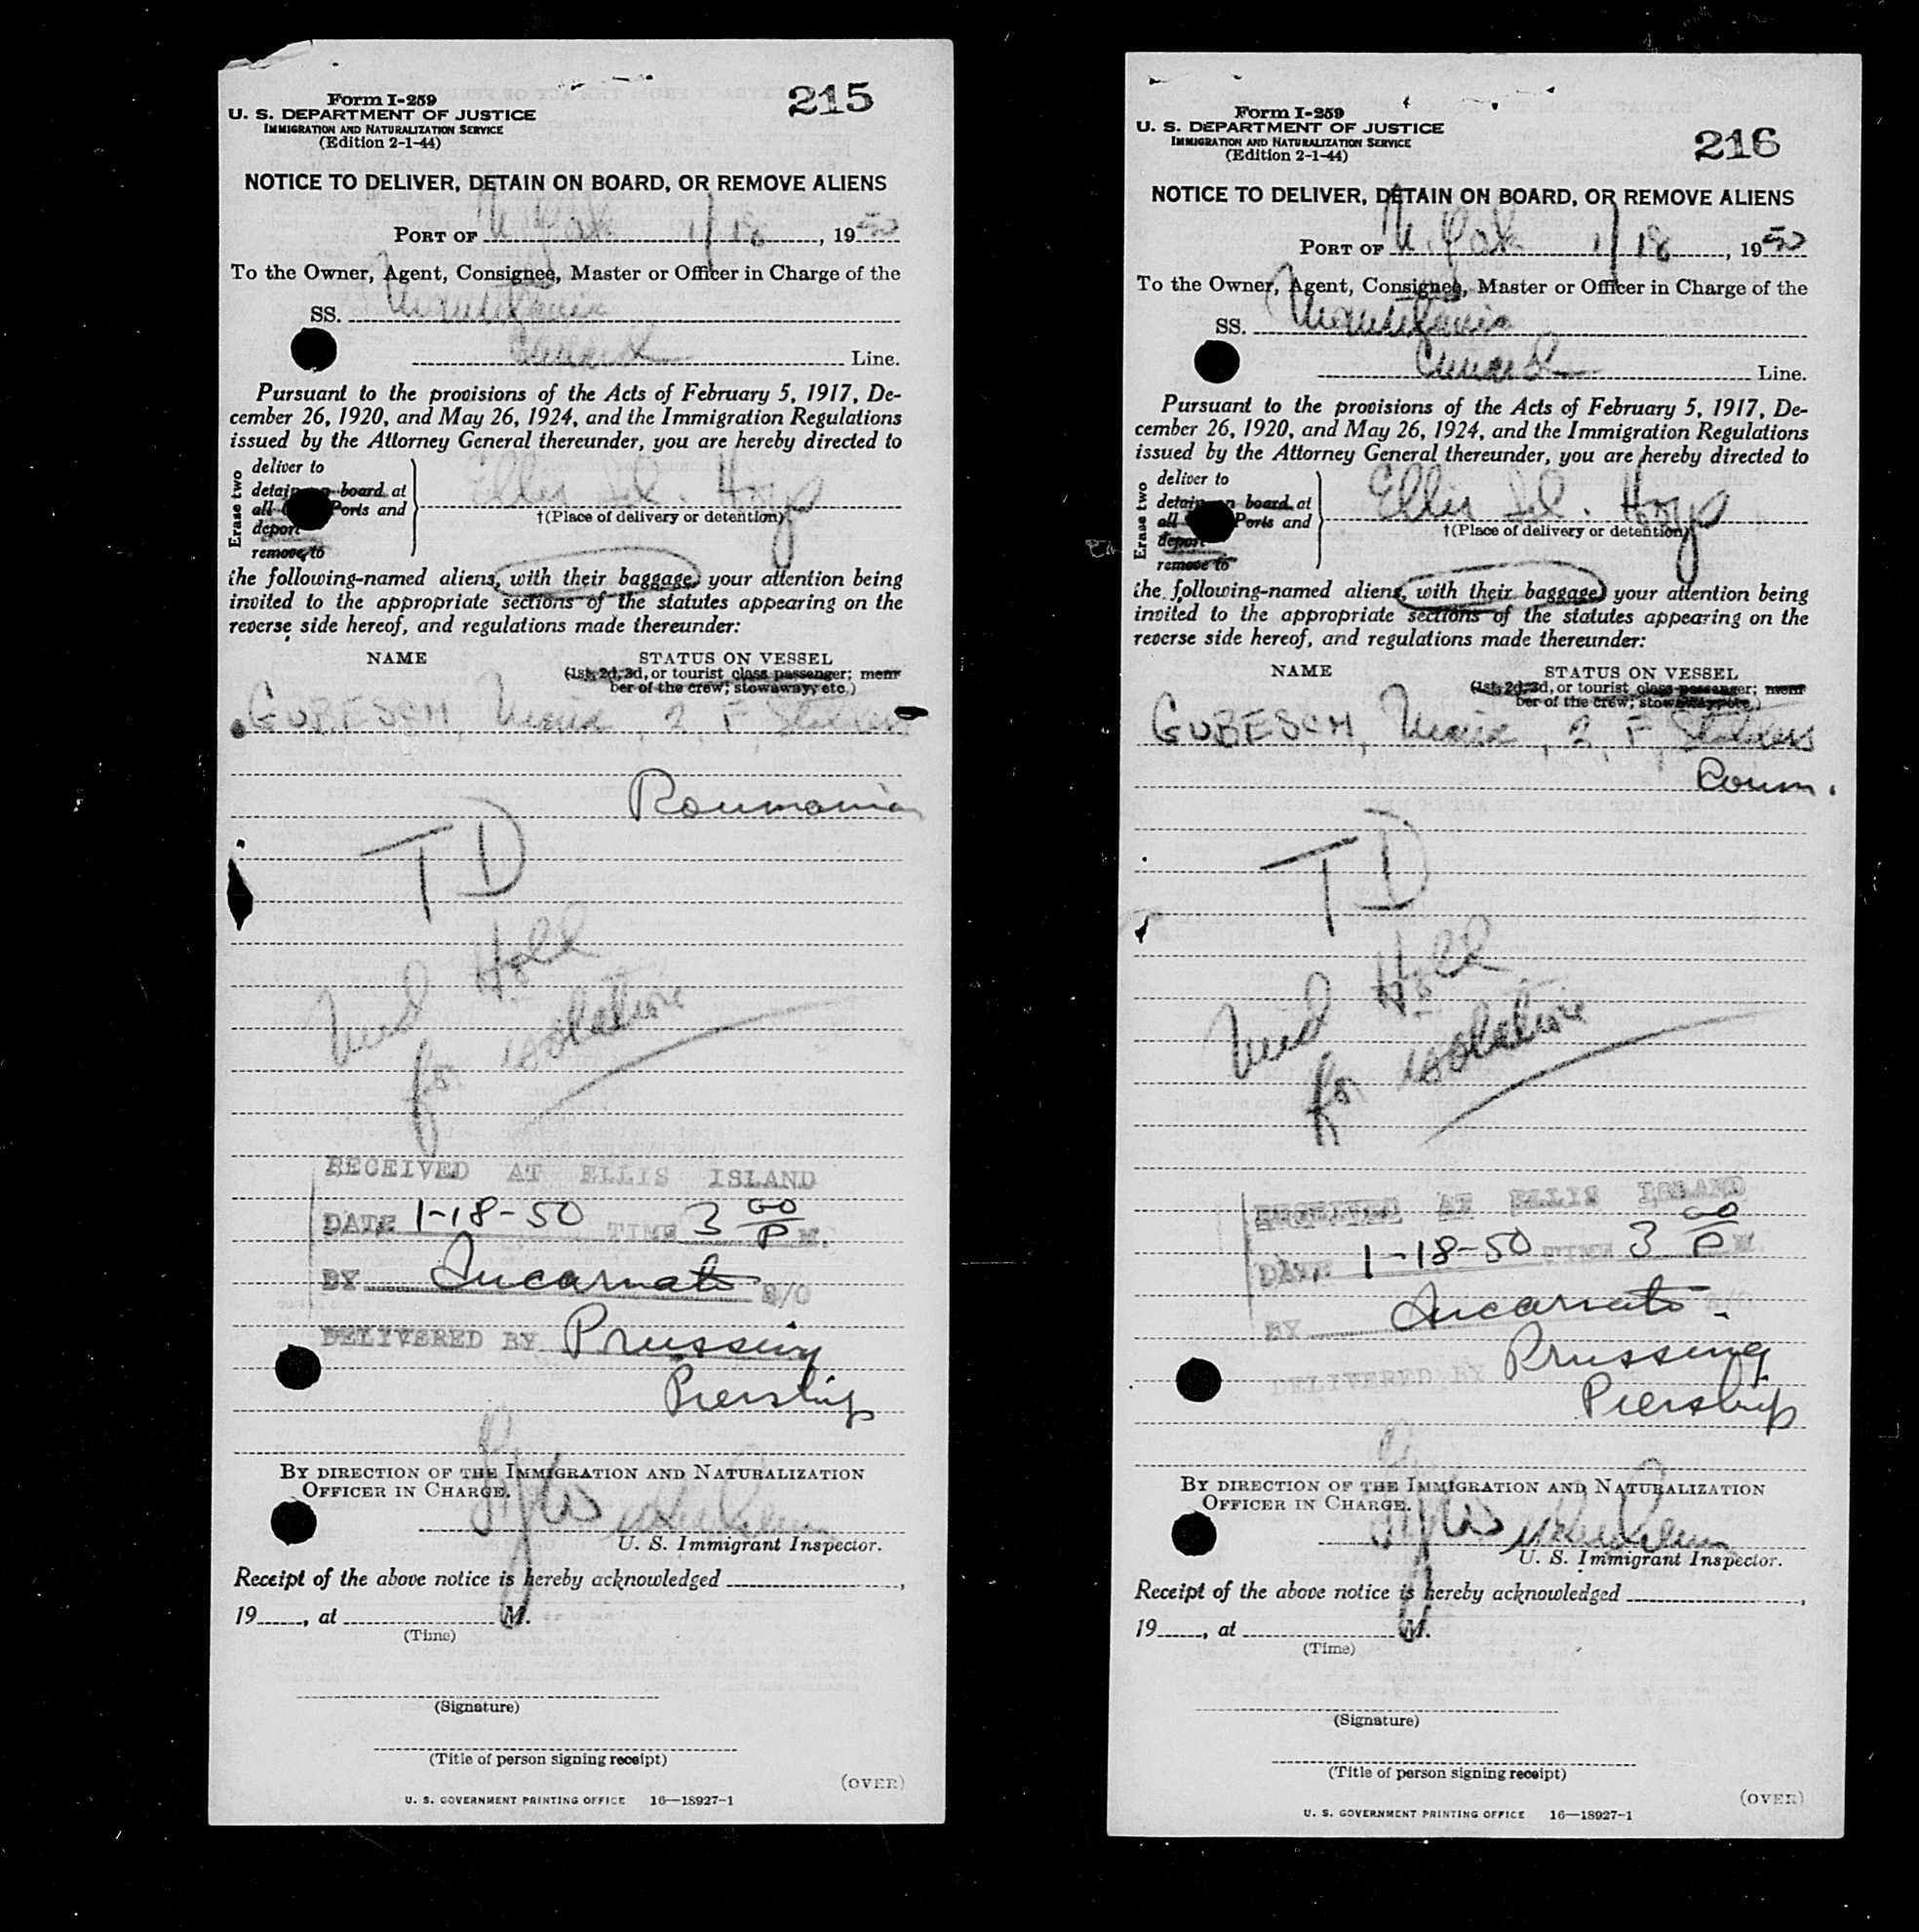 Form I-259
U. S. DEPARTMENT OF JUSTICE
IMMIGRATION AND NATURALIZATION SERVICE
(Edition 2-1-44)
215
NOTICE TO DELIVER, DETAIN ON BOARD, OR REMOVE ALIENS
PORT OF N. York 1/18, 1950
To the Owner, Agent, Consignee, Master or Officer in Charge of the
SS. Mauretania
Cunard Line.
Pursuant to the provisions of the Acts of February 5, 1917, De-
cember 26, 1920, and May 26, 1924, and the Immigration Regulations
issued by the Attorney General thereunder, you are hereby directed to
Erase two
deliver to
detain on board at
all Ports and
deport
remove to
Ellis Isl. Hosp
†(Place of delivery or detention)
the following-named aliens, with their baggage, your attention being
invited to the appropriate sections of the statutes appearing on the
reverse side hereof, and regulations made thereunder:
NAME STATUS ON VESSEL
(1st, 2d, 3d, or tourist class passenger; mem-
ber of the crew; stowaway, etc.)
GUBESCH, Maria, 2, F, Stateless
Roumanian
TD
Med Hold
for isolation
RECEIVED AT ELLIS ISLAND
DATE 1-18-50 TIME 3 00 P M.
BY Incarnato S/O
DELIVERED BY Prussing
Pership
BY DIRECTION OF THE IMMIGRATION AND NATURALIZATION
OFFICER IN CHARGE.
U. S. Immigrant Inspector.
Receipt of the above notice is hereby acknowledged ,
19 , at M.
(Time)
(Signature)
(Title of person signing receipt)
(OVER)
U. S. GOVERNMENT PRINTING OFFICE 16—18927-1
Form I-259
U. S. DEPARTMENT OF JUSTICE
IMMIGRATION AND NATURALIZATION SERVICE
(Edition 2-1-44)
216
NOTICE TO DELIVER, DETAIN ON BOARD, OR REMOVE ALIENS
PORT OF N. York 1/18, 1950
To the Owner, Agent, Consignee, Master or Officer in Charge of the
SS. Mauretania
Cunard Line.
Pursuant to the provisions of the Acts of February 5, 1917, De-
cember 26, 1920, and May 26, 1924, and the Immigration Regulations
issued by the Attorney General thereunder, you are hereby directed to
Erase two
deliver to
detain on board at
all Ports and
deport
remove to
Ellis Isl. Hosp
†(Place of delivery or detention)
the following-named aliens, with their baggage, your attention being
invited to the appropriate sections of the statutes appearing on the
reverse side hereof, and regulations made thereunder:
NAME STATUS ON VESSEL
(1st, 2d, 3d, or tourist class passenger; mem-
ber of the crew; stowaway, etc.)
GUBESCH, Maria, 2, F, Stateless
Roum.
TD
Med Hold
for isolation
RECEIVED AT ELLIS ISLAND
DATE 1-18-50 TIME 3 00 P M
BY Incarnato S/O
DELIVERED BY Prussing
Pership
BY DIRECTION OF THE IMMIGRATION AND NATURALIZATION
OFFICER IN CHARGE.
U. S. Immigrant Inspector.
Receipt of the above notice is hereby acknowledged ,
19 , at M.
(Time)
(Signature)
(Title of person signing receipt)
(OVER)
U. S. GOVERNMENT PRINTING OFFICE 16—18927-1